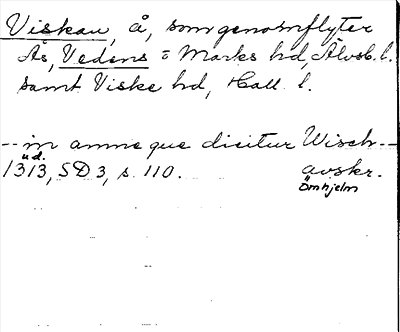 Viskan, å, som genomflyter
Ås, Vedens o Marks hd, Älvsb. l.
samt Viske hd, Hall. l.
-- in amne que dicitur Wisch --
u.d.
1313, SD 3, s. 110. avskr.
Örnhjelm